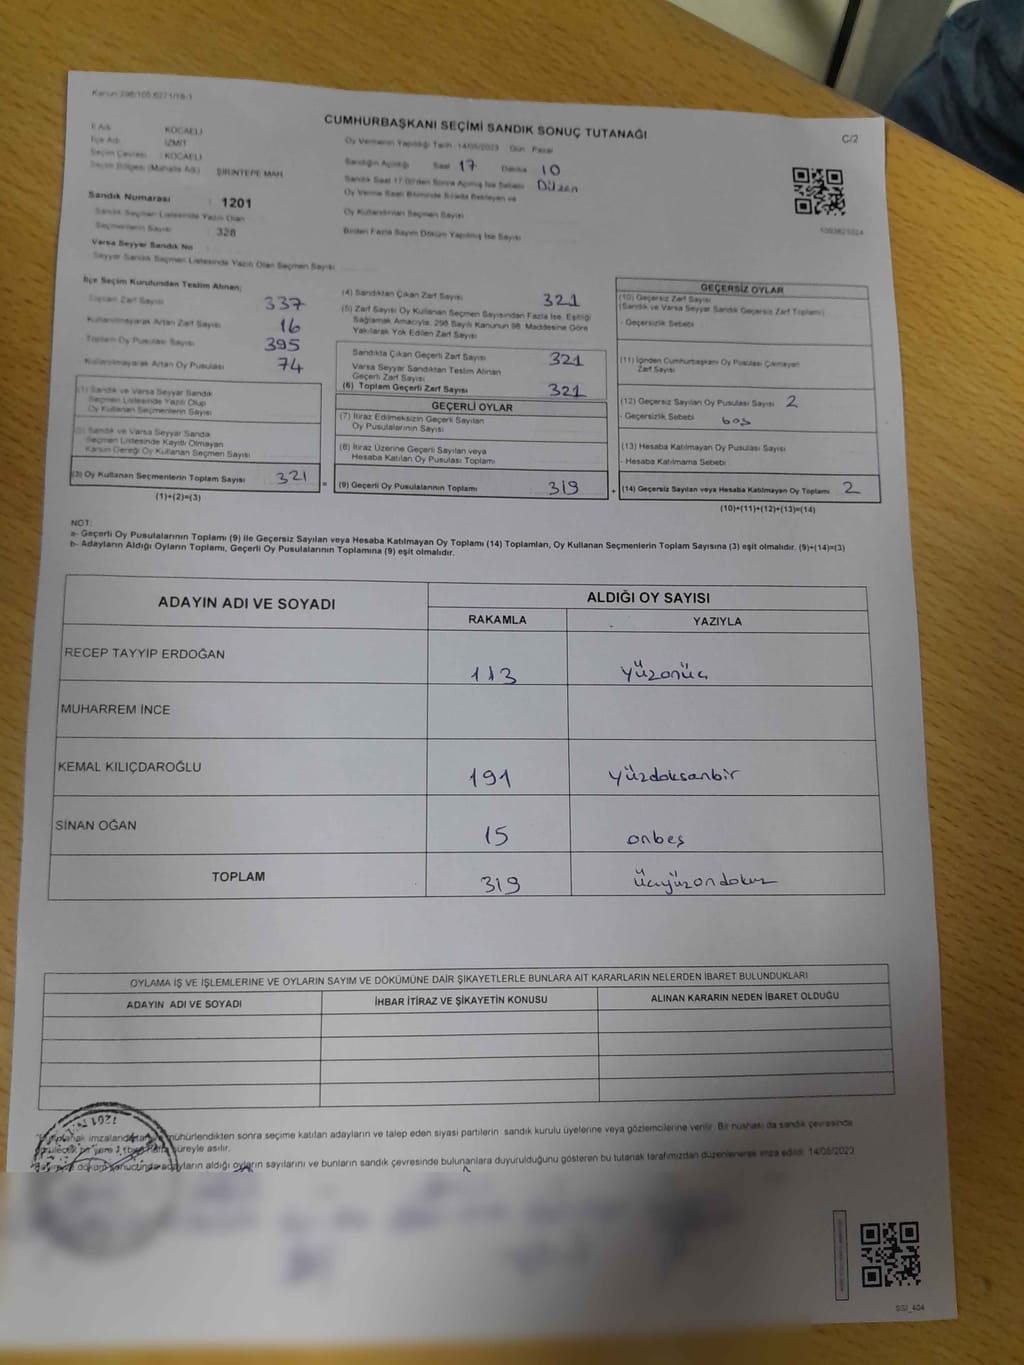 Kanun 298/105 6271/18-1
CUMHURBAŞKANI SEÇİMİ SANDIK SONUÇ TUTANAĞI
C/2
İl Adı KOCAELİ
İlçe Adı İZMİT
Seçim Çevresi : KOCAELİ
Seçim Bölgesi (Mahalle Adı)
Sandık Numarası : 1201
Sandık Seçmen Listesinde Yazılı Olan
Seçmenlerin Sayısı 328
Varsa Seyyar Sandık No
Seyyar Sandık Seçmen Listesinde Yazılı Olan Seçmen Sayısı
Oy Vermenin Yapıldığı Tarih 14/05/2023 Gün Pazar
Sandığın Açıldığı Saat 17 Dakika 10
Sandık Saat 17.00'den Sonra Açılmış İse Sebebi Düzen
Oy Verme Saati Bitiminde Sırada Bekleyen ve
Oy Kullandırılan Seçmen Sayısı
Birden Fazla Sayım Döküm Yapılmış İse Sayısı
İlçe Seçim Kurulundan Teslim Alınan;
Toplam Zarf Sayısı 337
Kullanılmayarak Artan Zarf Sayısı 16
Toplam Oy Pusulası Sayısı 395
Kullanılmayarak Artan Oy Pusulası 74
(1) Sandık ve Varsa Seyyar Sandık
Seçmen Listesinde Yazılı Olup
Oy Kullanan Seçmenlerin Sayısı
(2) Sandık ve Varsa Seyyar Sandık
Seçmen Listesinde Kayıtlı Olmayan
Kanun Gereği Oy Kullanan Seçmen Sayısı
(3) Oy Kullanan Seçmenlerin Toplam Sayısı 321
(1)+(2)=(3)
(4) Sandıktan Çıkan Zarf Sayısı 321
(5) Zarf Sayısı Oy Kullanan Seçmen Sayısından Fazla İse, Eşitliği
Sağlamak Amacıyla, 298 Sayılı Kanunun 98. Maddesine Göre
Yakılarak Yok Edilen Zarf Sayısı
Sandıkta Çıkan Geçerli Zarf Sayısı 321
Varsa Seyyar Sandıktan Teslim Alınan
Geçerli Zarf Sayısı
(6) Toplam Geçerli Zarf Sayısı 321
GEÇERLİ OYLAR
(7) İtiraz Edilmeksizin Geçerli Sayılan
Oy Pusulalarının Sayısı
(8) İtiraz Üzerine Geçerli Sayılan veya
Hesaba Katılan Oy Pusulası Toplamı
= (9) Geçerli Oy Pusulalarının Toplamı 319
GEÇERSİZ OYLAR
(10) Geçersiz Zarf Sayısı
(Sandık ve Varsa Seyyar Sandık Geçersiz Zarf Toplamı)
- Geçersizlik Sebebi
(11) İçinden Cumhurbaşkanı Oy Pusulası Çıkmayan
Zarf Sayısı
(12) Geçersiz Sayılan Oy Pusulası Sayısı 2
- Geçersizlik Sebebi boş
(13) Hesaba Katılmayan Oy Pusulası Sayısı
- Hesaba Katılmama Sebebi
+ (14) Geçersiz Sayılan veya Hesaba Katılmayan Oy Toplamı 2
(10)+(11)+(12)+(13)=(14)
NOT:
a- Geçerli Oy Pusulalarının Toplamı (9) ile Geçersiz Sayılan veya Hesaba Katılmayan Oy Toplamı (14) Toplamları, Oy Kullanan Seçmenlerin Toplam Sayısına (3) eşit olmalıdır. (9)+(14)=(3)
b- Adayların Aldığı Oyların Toplamı, Geçerli Oy Pusulalarının Toplamına (9) eşit olmalıdır.
ADAYIN ADI VE SOYADI ALDIĞI OY SAYISI
RAKAMLA YAZIYLA
RECEP TAYYİP ERDOĞAN 113 yüzonüç
MUHARREM İNCE
KEMAL KILIÇDAROĞLU 191 yüzdoksanbir
SİNAN OĞAN 15 onbeş
TOPLAM 319 üçyüzondokuz
OYLAMA İŞ VE İŞLEMLERİNE VE OYLARIN SAYIM VE DÖKÜMÜNE DAİR ŞİKAYETLERLE BUNLARA AİT KARARLARIN NELERDEN İBARET BULUNDUKLARI
ADAYIN ADI VE SOYADI İHBAR İTİRAZ VE ŞİKAYETİN KONUSU ALINAN KARARIN NEDEN İBARET OLDUĞU
mühürlendikten sonra seçime katılan adayların ve talep eden siyasi partilerin sandık kurulu üyelerine veya gözlemcilerine verilir. Bir nüshası da sandık çevresinde
süreyle asılır.
adayların aldığı oyların sayılarını ve bunların sandık çevresinde bulunanlara duyurulduğunu gösteren bu tutanak tarafımızdan düzenlenerek imza edildi. 14/05/2023
SSI_404